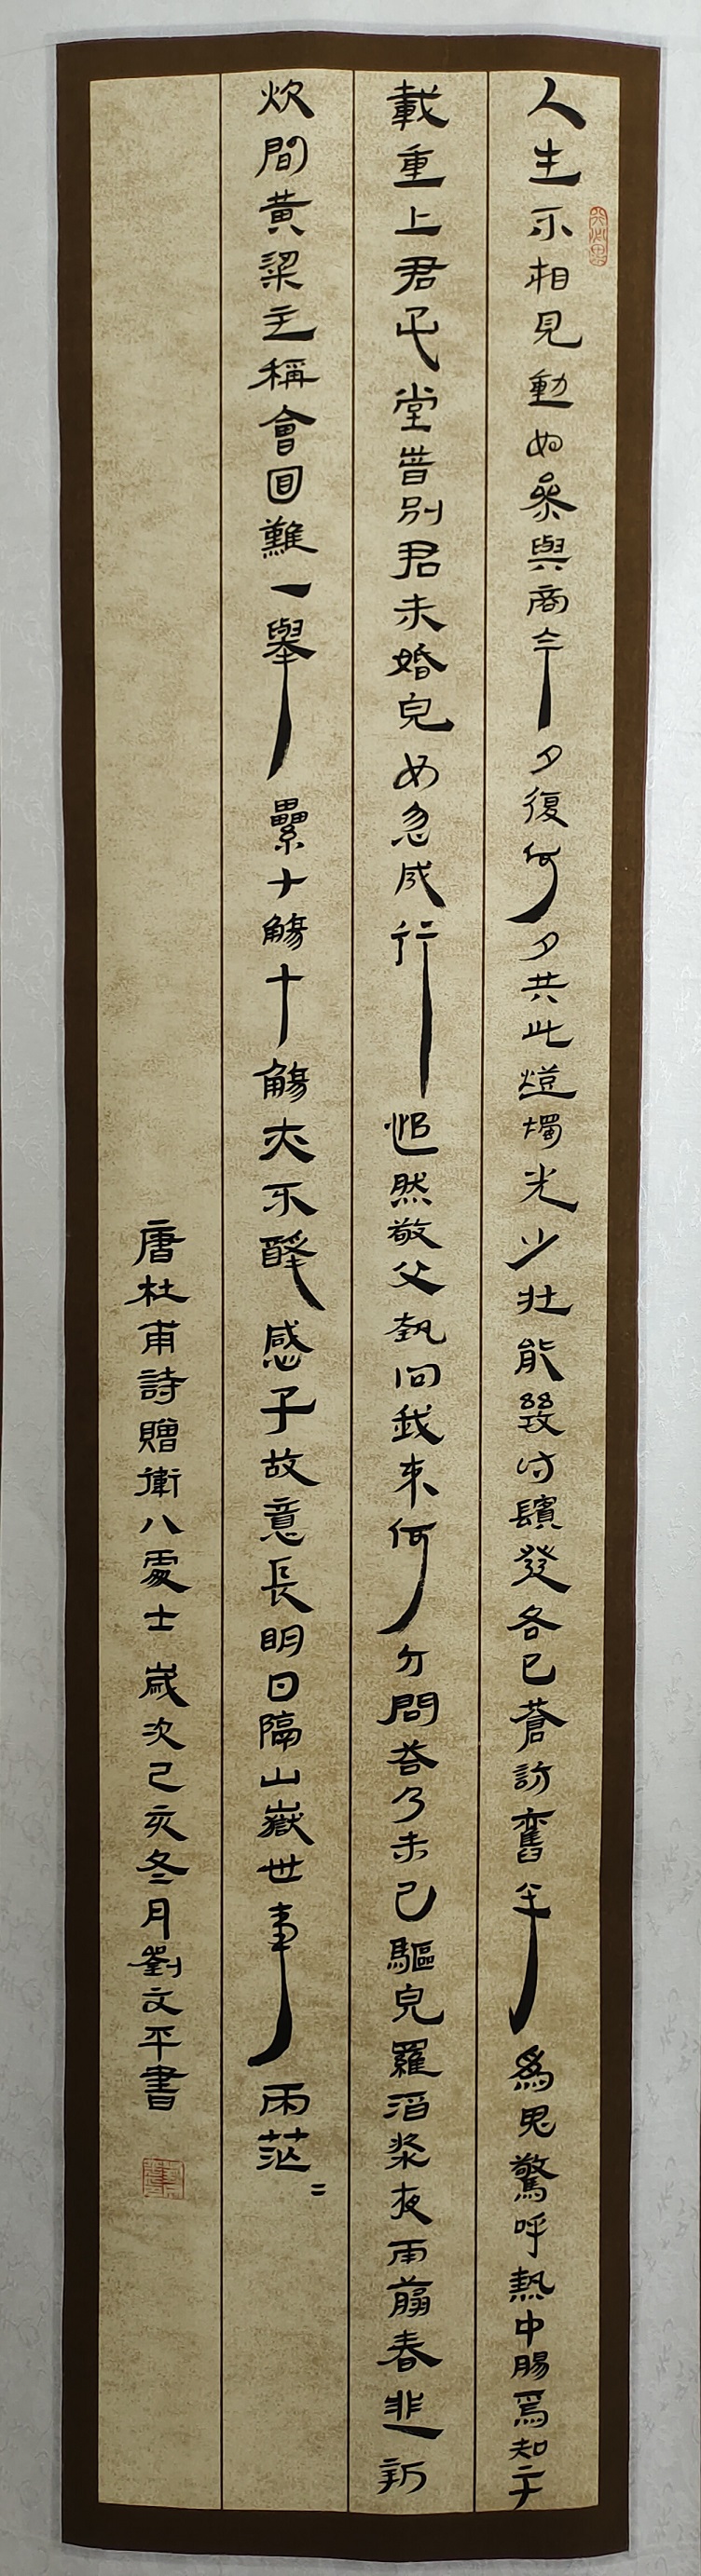 人生不相見動如參與商今夕復何夕共此燈燭光少壯能幾時鬢發各已蒼訪舊半為鬼驚呼熱中腸焉知二十
載重上君子堂昔別君未婚兒女忽成行怡然敬父執問我來何方問答乃未已驅兒羅酒漿夜雨翦春韭新
炊間黃粱主稱會面難一舉累十觴十觴亦不醉感子故意長明日隔山嶽世事兩茫〻
唐杜甫詩贈衛八處士 歲次己亥冬月劉文平書